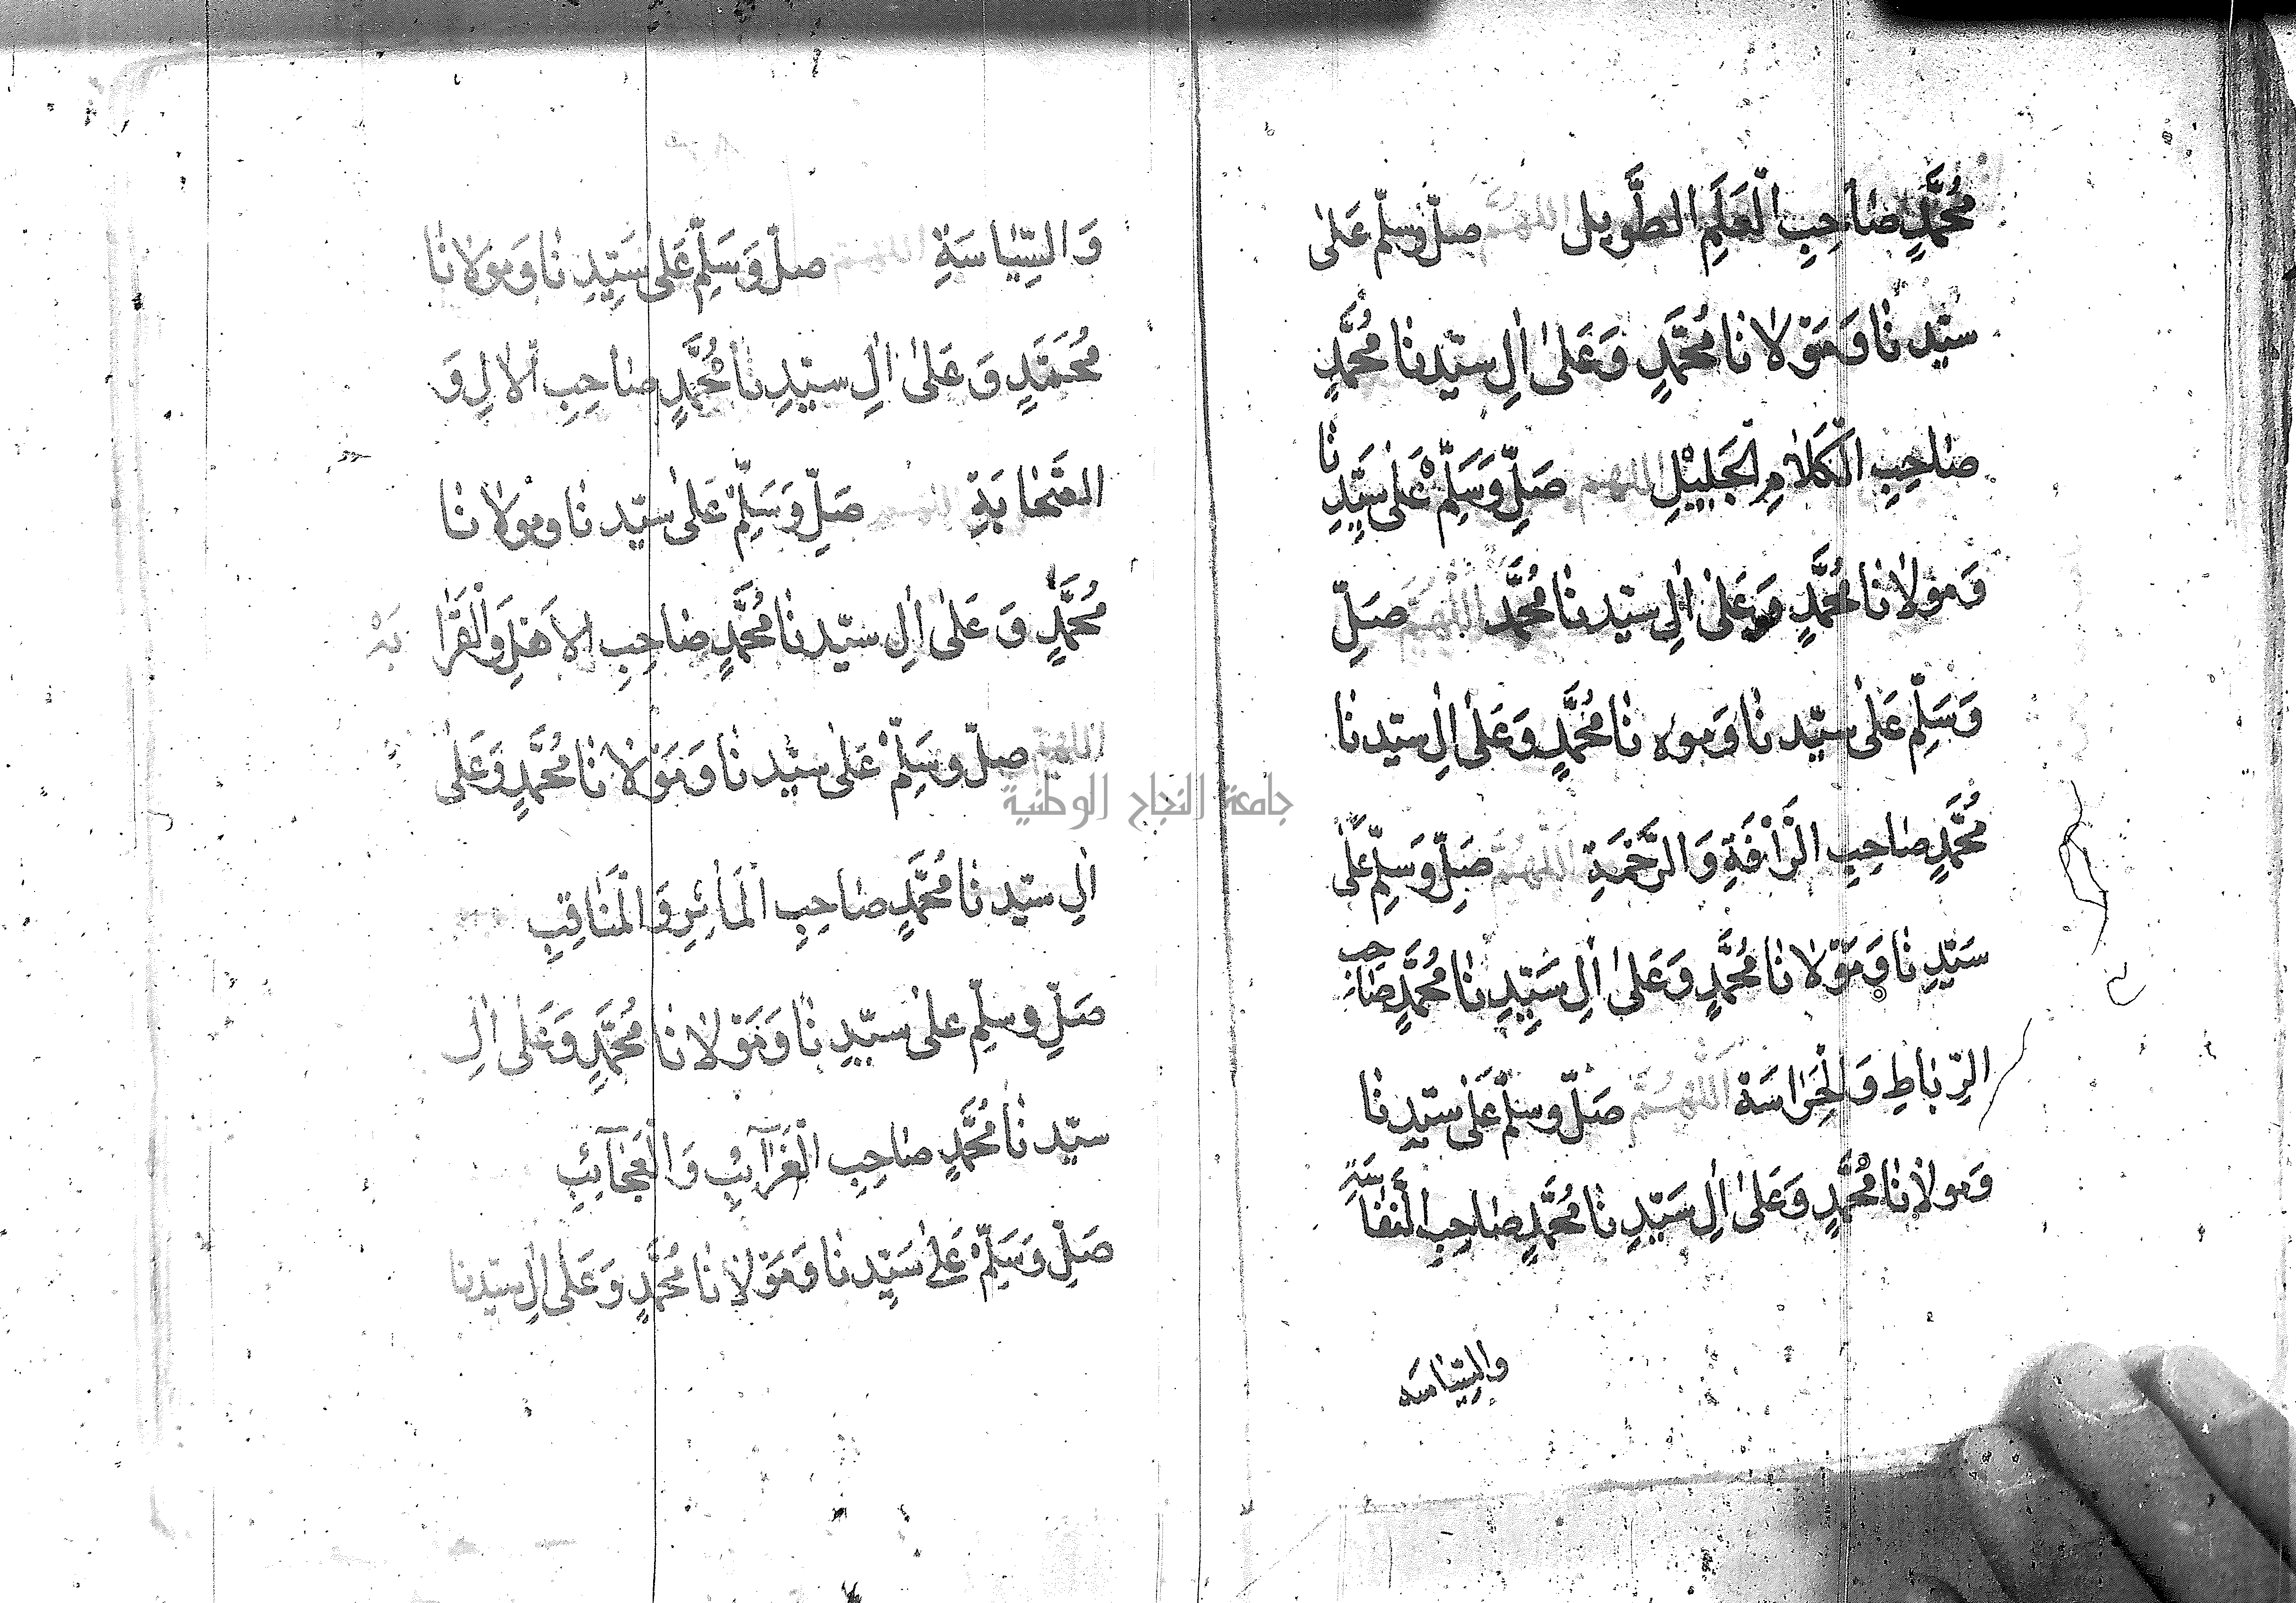 مُحَمَّدٍ صَاحِبِ الْعَلَمِ الطَّوِيلِ اللهم صَلِّ وَسَلِّمْ عَلٰى
سَيِّدِنَا وَمَوْلَانَا مُحَمَّدٍ وَعَلٰى اٰلِ سَيِّدِنَا مُحَمَّدٍ
صَاحِبِ الْكَلَامِ الْجَلِيْلِ اللهم صَلِّ وَسَلِّمْ عَلٰى سَيِّدِنَا
وَمَوْلَانَا مُحَمَّدٍ وَعَلٰى اٰلِ سَيِّدِنَا مُحَمَّد اللّٰهُمَّ صَلِّ
وَسَلِّمْ عَلٰى سَيِّدِنَا وَمَوْلَانَا مُحَمَّدٍ وَعَلٰى اٰلِ سَيِّدِنَا
مُحَمَّدٍ صَاحِبِ الرَّأْفَةِ وَالرَّحْمَةِ اللّٰهُمَّ صَلِّ وَسَلِّمْ عَلٰى
سَيِّدِنَا وَمَوْلَانَا مُحَمَّدٍ وَعَلٰى اٰلِ سَيِّدِنَا مُحَمَّدٍ صَاحِبِ
الرِّبَاطِ وَالْحِرَاسَة اللّٰهُمَّ صَلِّ وَسَلِّمْ عَلٰى سَيِّدِنَا
وَمَوْلَانَا مُحَمَّدٍ وَعَلٰى اٰلِ سَيِّدِنَا مُحَمَّدٍ صَاحِبِ
والسِّيَاسَه
وَالسِّيَاسَةِ اللهم صَلِّ وَسَلِّمْ عَلٰى سَيِّدِنَا وَمَوْلَانَا
مُحَمَّدٍ وَعَلٰى اٰلِ سَيِّدِنَا مُحَمَّدٍ صَاحِبِ الْاٰلِ وَ
الصَّحَابَةِ اللهم صَلِّ وَسَلِّمْ عَلٰى سَيِّدِنَا وَمَوْلَانَا
مُحَمَّدٍ وَعَلٰى اٰلِ سَيِّدِنَا مُحَمَّدٍ صَاحِبِ الْاَهْلِ وَالْقَرَابَةْ
اللهم صَلِّ وَسَلِّمْ عَلٰى سَيِّدِنَا وَمَوْلَانَا مُحَمَّدٍ وَعَلٰى
اٰلِ سَيِّدِنَا مُحَمَّدٍ صَاحِبِ الْمَاٰثِرِ وَالْمَنَاقِبِ
صَلِّ وَسَلِّمْ عَلٰى سَيِّدِنَا وَمَوْلَانَا مُحَمَّدٍ وَعَلٰى اٰلِ
سَيِّدِنَا مُحَمَّدٍ صَاحِبِ الْغَرَآئِبِ وَالْعَجَآئِبِ
صَلِّ وَسَلِّمْ عَلٰى سَيِّدِنَا وَمَوْلَانَا مُحَمَّدٍ وَعَلٰى اٰلِ سَيِّدِنَا
جامعة النجاح الوطنية